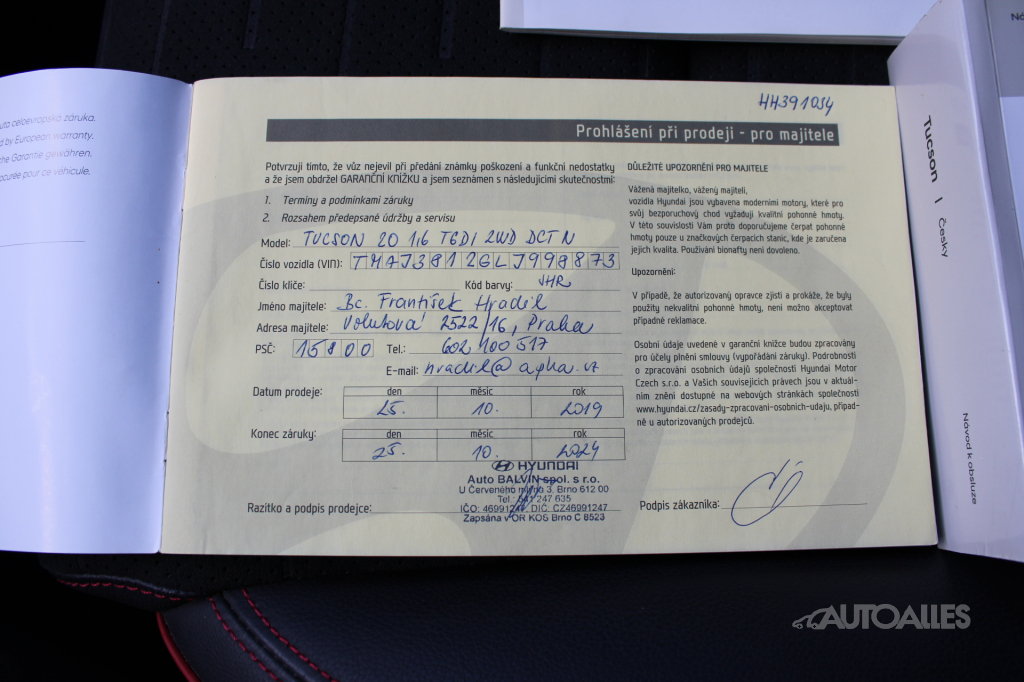 uta celoevropská záruka.
d by European warranty.
he Garantie gewähren.
ocurée pour ce véhicule.
HH391054
Prohlášení při prodeji - pro majitele
Potvrzuji tímto, že vůz nejevil při předání známky poškození a funkční nedostatky
a že jsem obdržel GARANČNÍ KNÍŽKU a jsem seznámen s následujícími skutečnostmi:
1. Termíny a podmínkami záruky
2. Rozsahem předepsané údržby a servisu
Model: TUCSON 20 1,6 TGDI 2WD DCT N
Číslo vozidla (VIN): TMAJ3812GLJ998873
Číslo klíče: Kód barvy: JHR
Jméno majitele: Bc. František Hradil
Adresa majitele: Volutová 2522/16, Praha
PSČ: 15800 Tel.: 602 100 517
E-mail: hradil@
Datum prodeje: den měsíc rok
25. 10. 2019
Konec záruky: den měsíc rok
25. 10. 2024
HYUNDAI
Auto BALVÍN spol. s r.o.
U Červeného mlýna 3, Brno 612 00
Tel.: 541 247 635
Razítko a podpis prodejce: IČO: 46991247, DIČ: CZ46991247
Zapsána v OR KOS Brno C 8523
DŮLEŽITÉ UPOZORNĚNÍ PRO MAJITELE
Vážená majitelko, vážený majiteli,
vozidla Hyundai jsou vybavena moderními motory, které pro
svůj bezporuchový chod vyžadují kvalitní pohonné hmoty.
V této souvislosti Vám proto doporučujeme čerpat pohonné
hmoty pouze u značkových čerpacích stanic, kde je zaručena
jejich kvalita. Používání bionafty není dovoleno.
Upozornění:
V případě, že autorizovaný opravce zjistí a prokáže, že byly
použity nekvalitní pohonné hmoty, není možno akceptovat
případné reklamace.
Osobní údaje uvedené v garanční knížce budou zpracovány
pro účely plnění smlouvy (vypořádání záruky). Podrobnosti
o zpracování osobních údajů společností Hyundai Motor
Czech s.r.o. a Vašich souvisejících právech jsou v aktuál-
ním znění dostupné na webových stránkách společnosti
www.hyundai.cz/zasady-zpracovani-osobnich-udaju, případ-
ně u autorizovaných prodejců.
Podpis zákazníka:
Tucson | Česky
Návod k obsluze
AUTOALLES